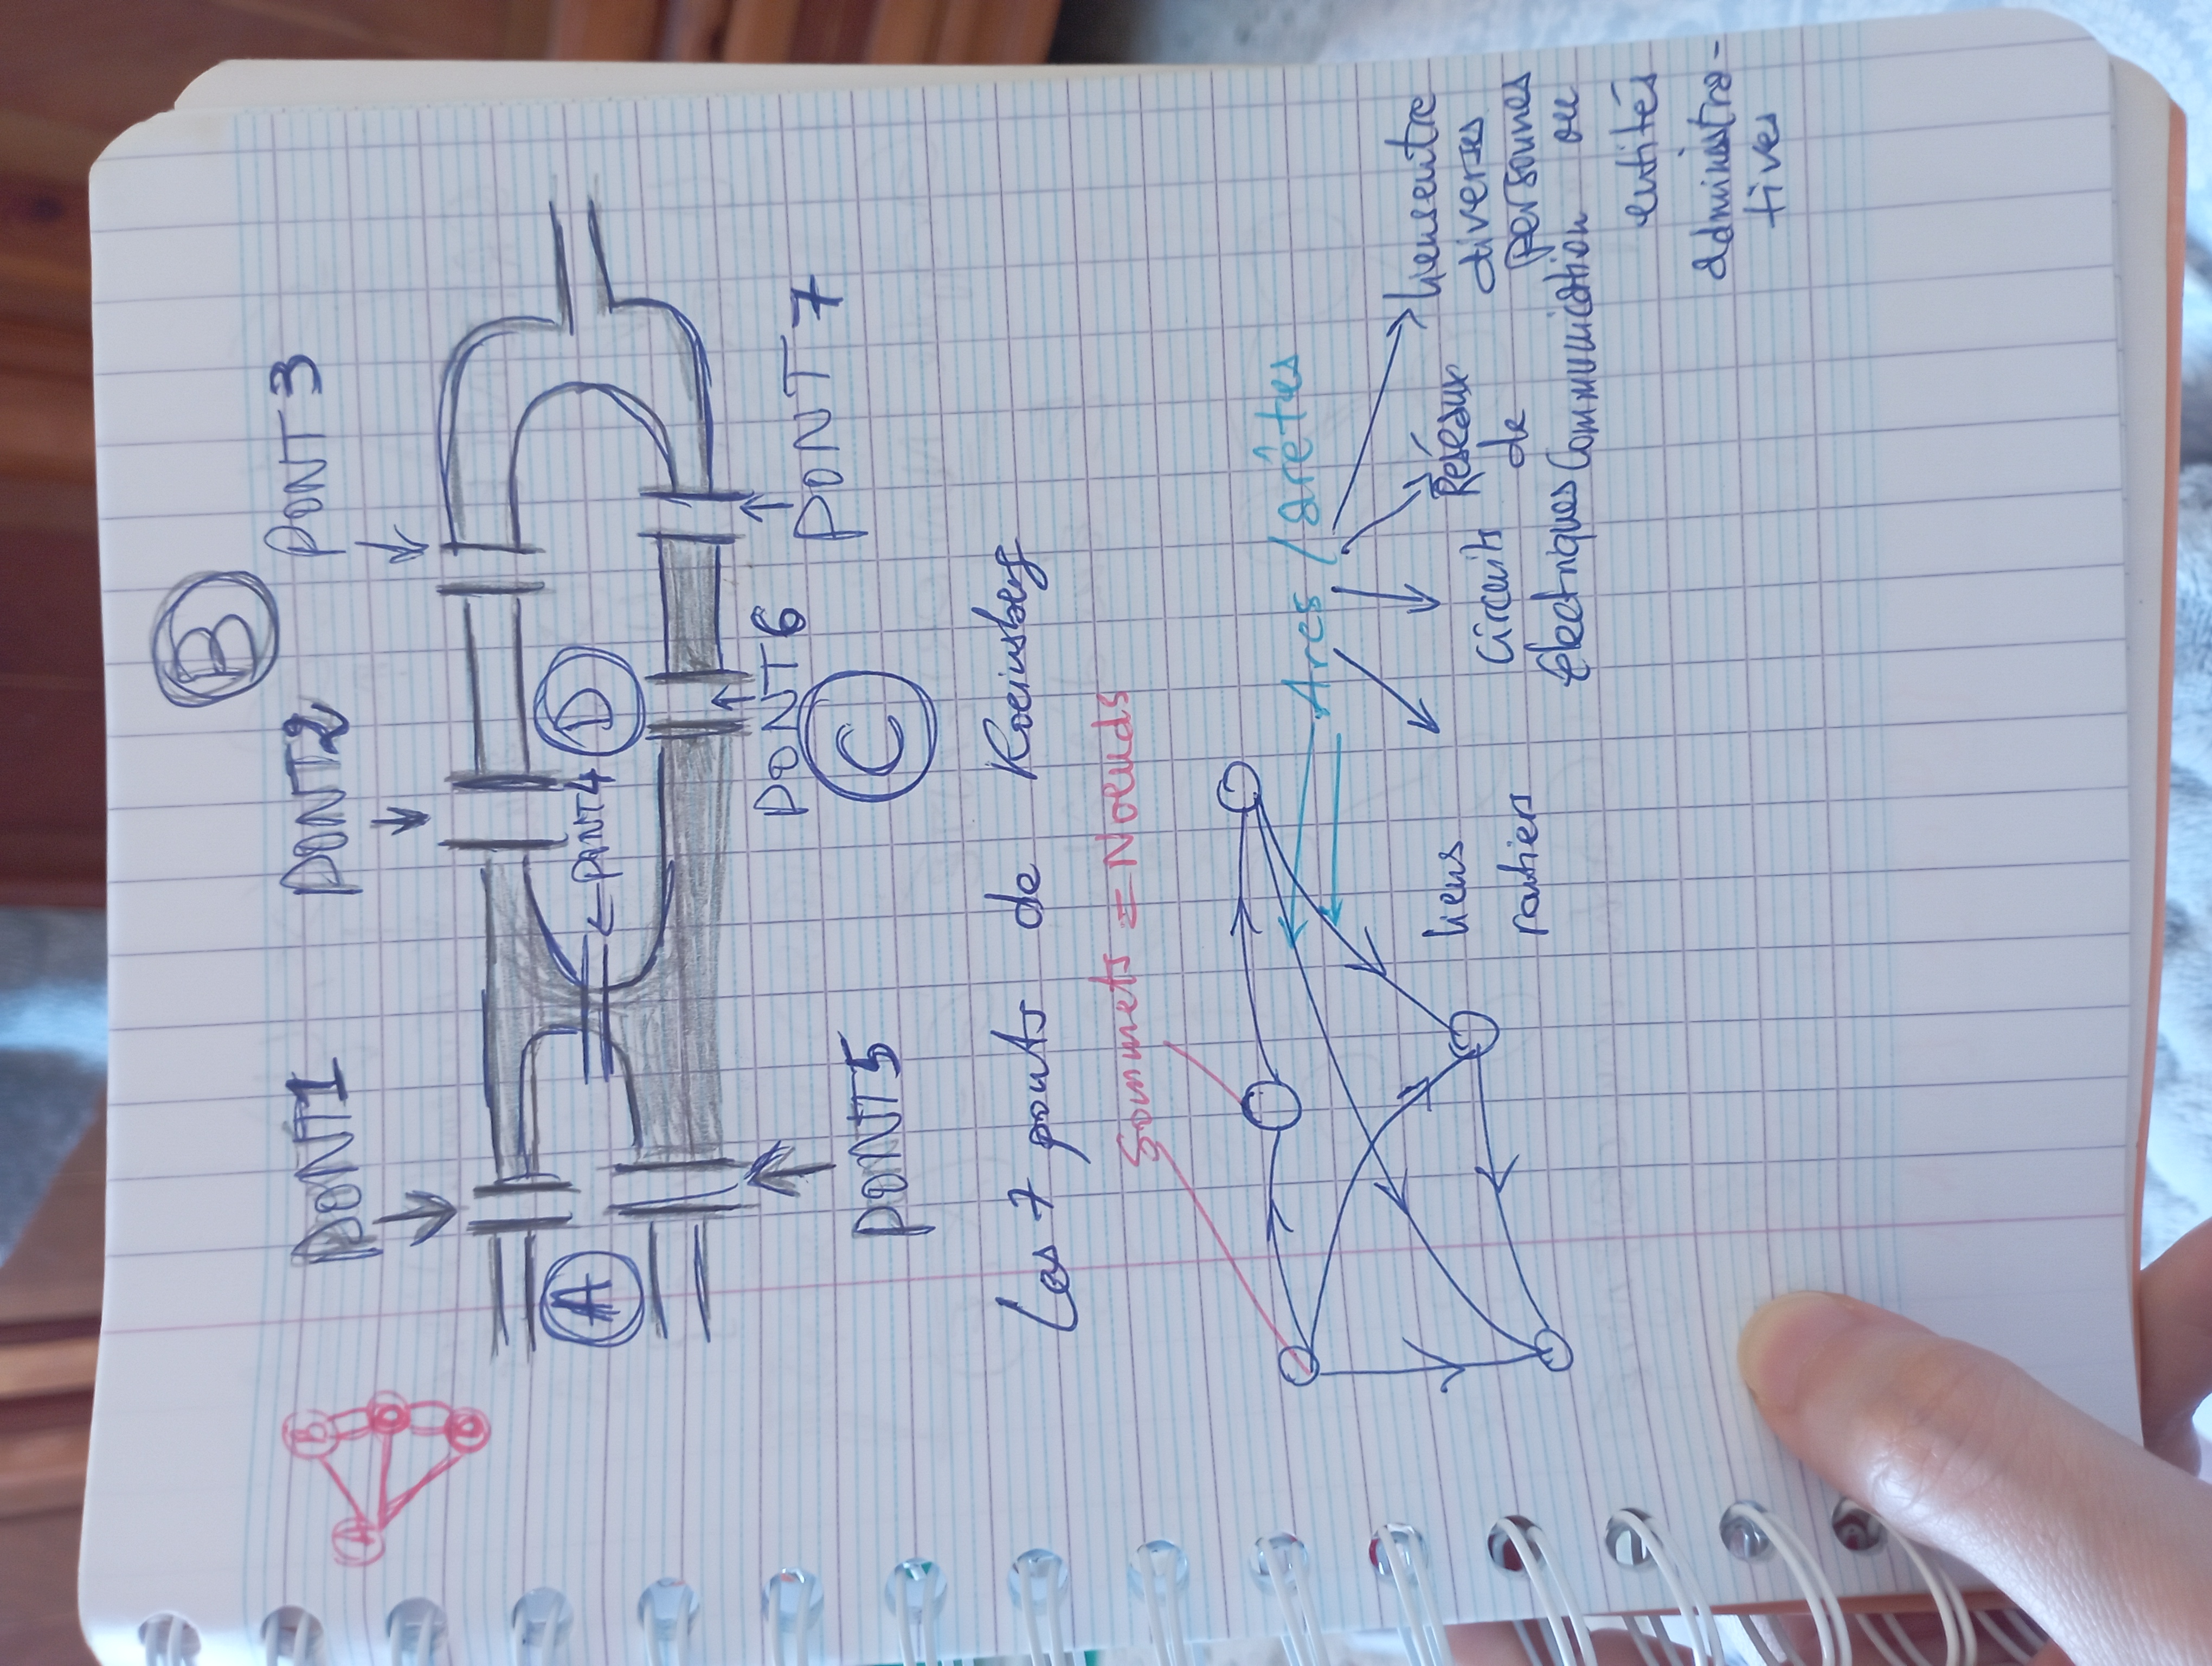 B
PONT1 PONT2 PONT3
B
A
D
C
A PONT4 D
PONT6
PONT7
PONT5
C
Les 7 ponts de Koeinsberg
Sommets = Noeuds
Arcs / arêtes
liens
routiers
Circuits
électriques
Réseaux
de
Communication
liens entre
diverses
personnes
ou
entités
administra-
tives